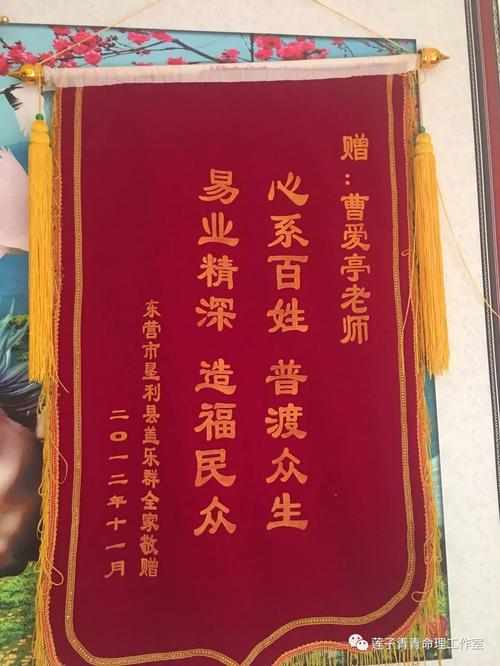 赠：曹爱亭老师
心系百姓 普渡众生
易业精深 造福民众
东营市垦利县盖乐群全家敬赠
二〇一二年十一月
莲子青青命理工作室